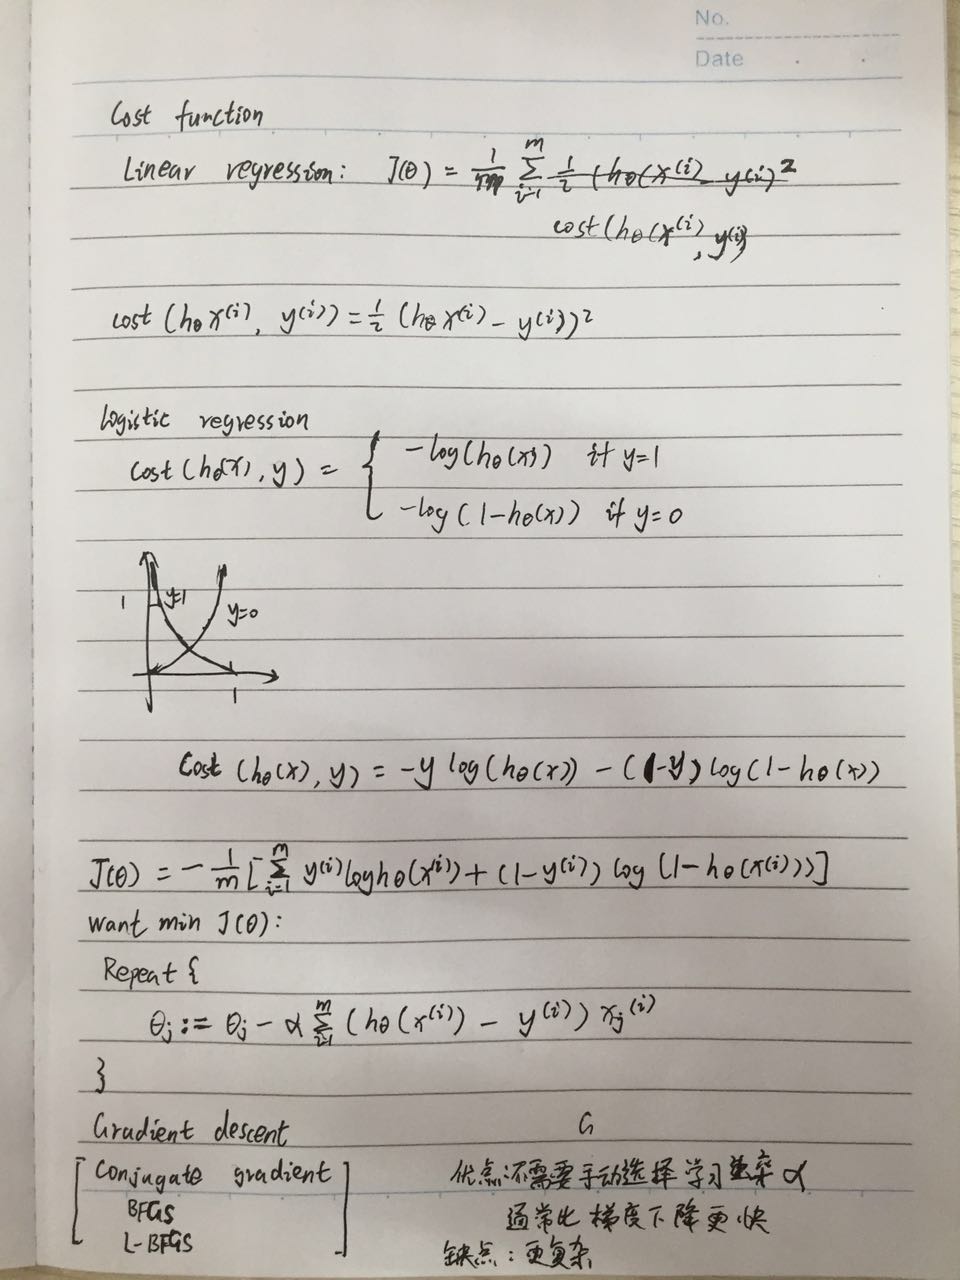 No.
Date
Cost function
Linear regression: J(θ) = 1/m Σ_{i=1}^{m} 1/2 (hθ(x^(i) - y^(i))^2
cost(hθ(x^(i), y^(i))
cost (hθ x^(i), y^(i)) = 1/2 (hθ x^(i) - y^(i))^2
Logistic regression
cost (hθ(x), y) = {
-log(hθ(x)) if y=1
-log(1-hθ(x)) if y=0
1 y=1
y=0
1
Cost (hθ(x), y) = -y log(hθ(x)) - (1-y) log(1-hθ(x))
J(θ) = -1/m [Σ_{i=1}^{m} y^(i) log hθ(x^(i)) + (1-y^(i)) log (1-hθ(x^(i)))]
want min J(θ):
Repeat {
θj := θj - α Σ_{i=1}^{m} (hθ(x^(i)) - y^(i)) xj^(i)
}
Gradient descent G
[ Conjugate gradient ] 优点:不需要手动选择学习率 α
BFGS 通常比梯度下降更快
L-BFGS 缺点:更复杂